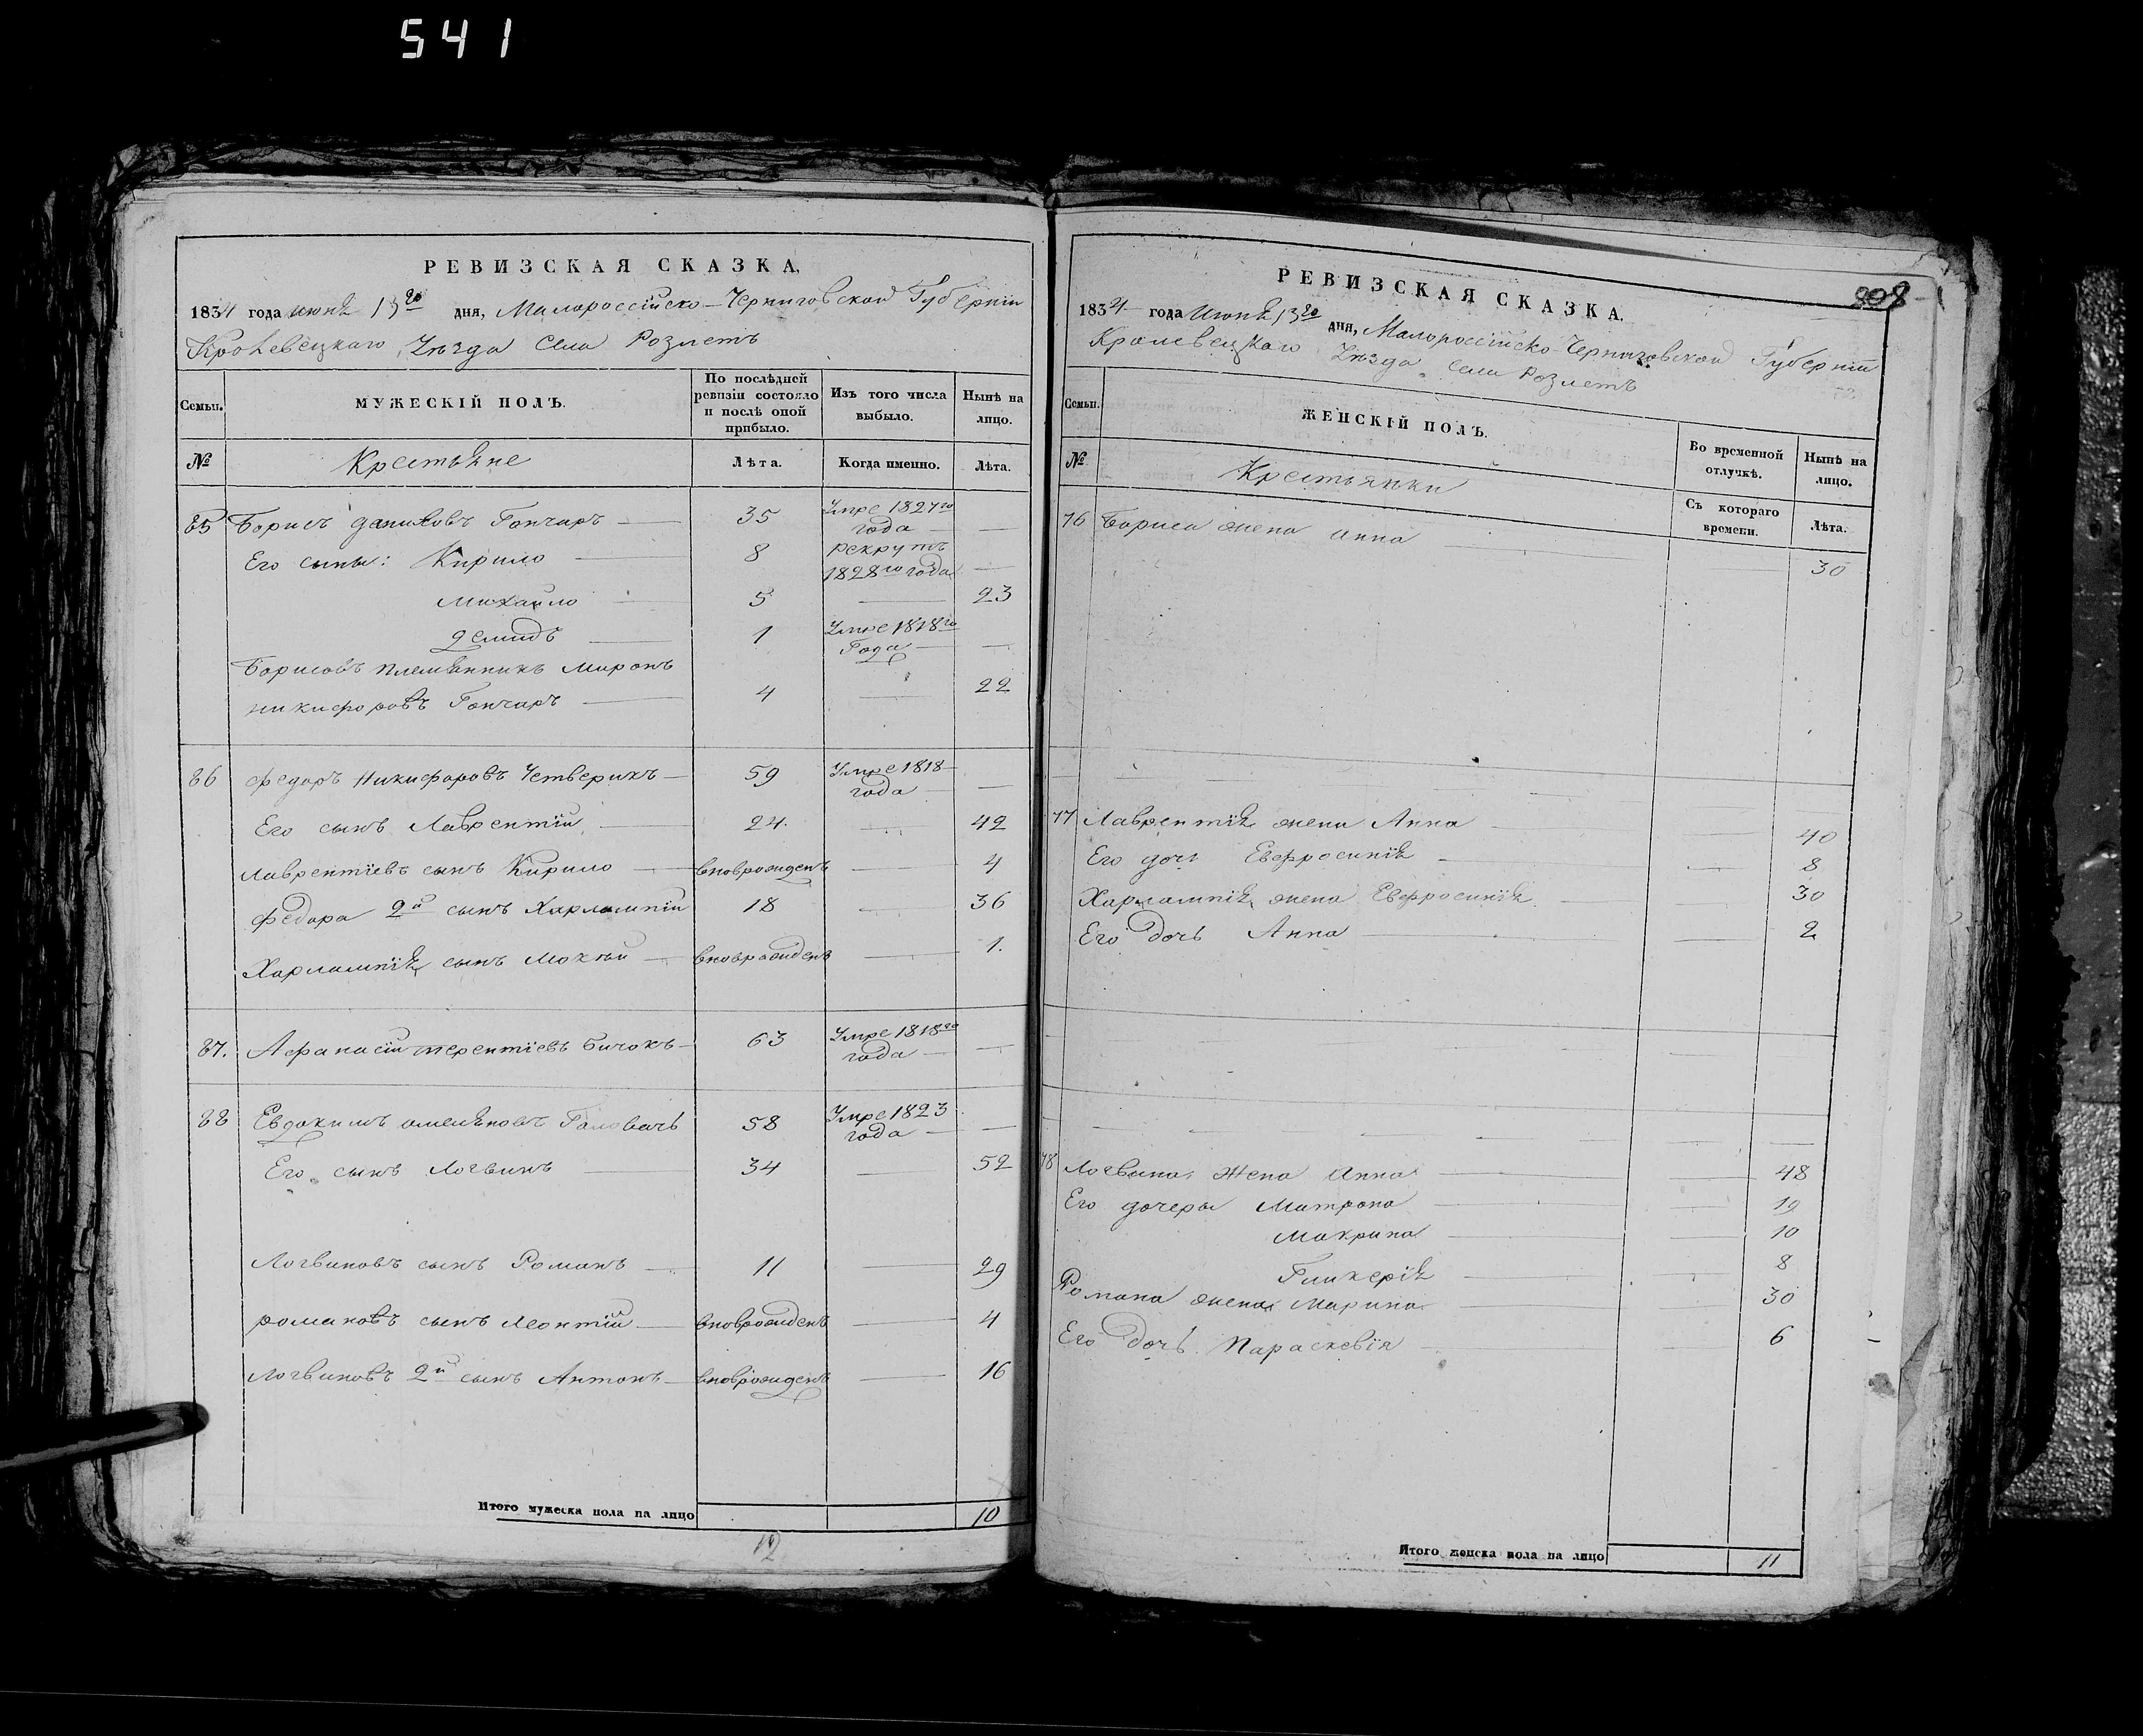 541
РЕВИЗСКАЯ СКАЗКА.
1834 года июня 13го дня, Малороссійско-Черниговской Губерніи
Кролевецкаго Уѣзда Села Розлетъ
Семьи.
МУЖЕСКІЙ ПОЛЪ.
По послѣдней ревизіи состояло и послѣ оной прибыло.
Изъ того числа выбыло.
Нынѣ на лицо.
№
Крестьяне
Лѣта.
Когда именно.
Лѣта.
85 Борисъ Даниловъ Гончаръ — 35 Умре 1827го года —
Его сыны: Кирило — 8 рекрутъ 1828го года —
Михайло — 5 — 23
Демидъ — 1 Умре 1818го Года —
Борисовъ племянникъ Миронъ
никифоровъ Гончаръ — 4 — 22
86 Федоръ Никифоровъ Четверикъ — 59 Умре 1818 года —
Его сынъ Лаврентій — 24 — 42
Лаврентіевъ сынъ Кирило — вноврожденъ — 4
Федора 2й сынъ Харлампій 18 — 36
Харлампія сынъ Мокѣй — вноврожденъ — 1.
87. Афанасій терентіевъ Бичокъ — 63 Умре 1818го года —
88 Евдокимъ омеляновъ Головачь 58 Умре 1823 года —
Его сынъ Логвинъ — 34 — 52
Логвиновъ сынъ Романъ — 11 — 29
романовъ сынъ Леонтій — вноврожденъ — 4
Логвиновъ 2й сынъ Антонъ — вноврожденъ — 16
Итого мужеска пола на лицо 10
12
РЕВИЗСКАЯ СКАЗКА.
808
1834 года Июня 13го дня, Малороссійско-Черниговской Губерніи
Кролевецкаго Уѣзда Села Розлетъ
Семьи.
ЖЕНСКІЙ ПОЛЪ.
Во временной отлучкѣ.
Нынѣ на лицо.
№
Крестьянки
Съ котораго времени.
Лѣта.
76 Бориса жена Анна — — 30
77 Лаврентія жена Анна — — 40
Его дочь Евфросинія — — 8
Харлампія жена Евфросинія — — 30
Его дочь Анна — — 2
78 Логвина Жена Анна — — 48
Его дочери Матрона — — 19
Макрина — — 10
Гликерія — — 8
Романа жена Марина — — 30
Его дочь Параскевія — — 6
Итого женска пола на лицо 11